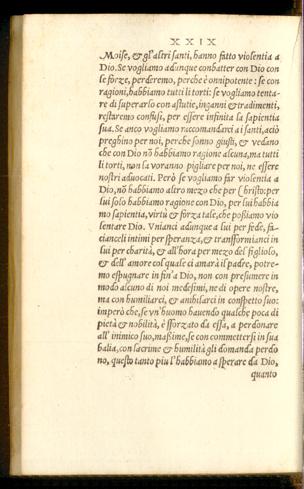 XXIX
Moise, & gl'altri santi, hanno fatto violentia a
Dio. Se vogliamo adunque conbatter con Dio con
se forze, perderemo, perche è onnipotente: se con
ragioni, habbiamo tutti li torti: se vogliamo tenta-
re di superarlo con astutie, inganni & tradimenti,
restaremo confusi, per essere infinita la sapientia
sua. Se anco vogliamo raccomandarci a i santi, acciò
preghino per noi, perche sonno giusti, & vedano
che con Dio nō habbiamo ragione alcuna, ma tutti
li torti, non la voranno pigliare per noi, ne essere
nostri aduocati. Però se vogliamo far violentia a
Dio, nō habbiamo altro mezo che per Christo: per
lui solo habbiamo ragione con Dio, per lui habbia
mo sapientia, virtù & forza tale, che possiamo vio
lentare Dio. Vnianci adunque a lui per fede, fa-
cianceli intimi per speranza, & transformianci in
lui per charità, & all'hora per mezo del figliolo,
& dell'amore col quale ci amarà il padre, potre-
mo espugnare in fin'a Dio, non con presumere in
modo alcuno di noi medesimi, ne di opere nostre,
ma con humiliarci, & anihilarci in conspetto suo:
imperò che, se vn'huomo hauendo qualche poca di
pietà & nobilità, è sforzato da essa, a perdonare
all'inimico suo, maßime, se con commettersi in sua
balia, con lacrime & humilità gli domanda perdo
no, questo tanto piu l'habbiamo a sperare da Dio,
quanto